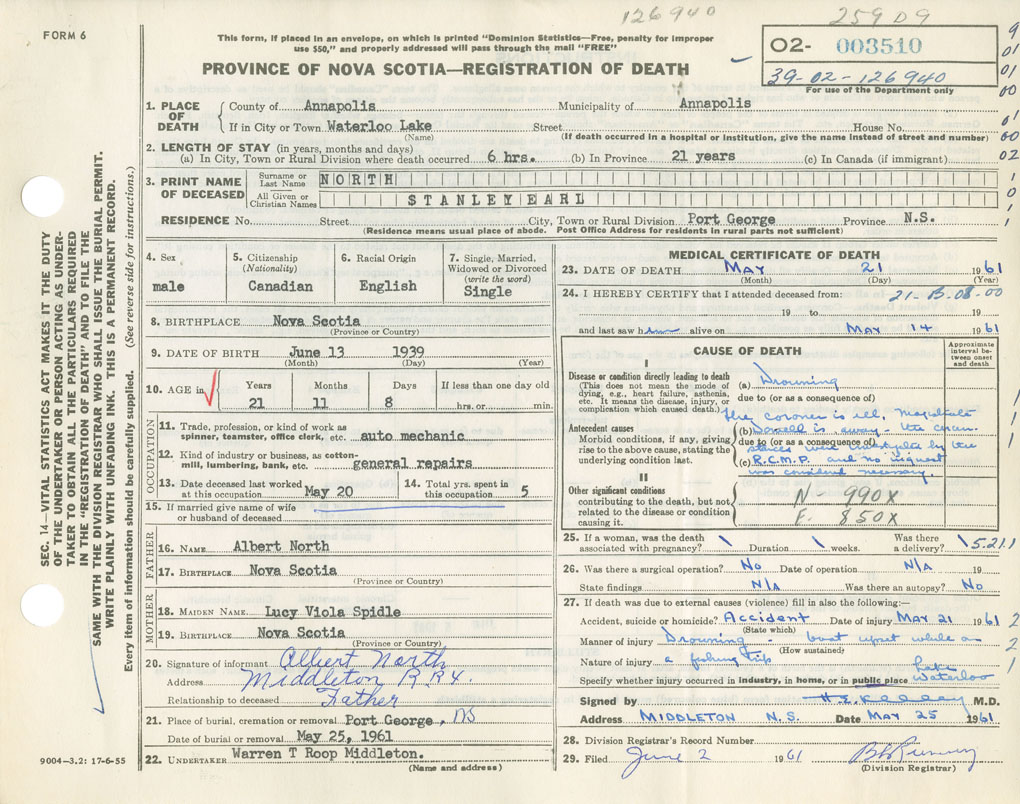 126940
25909
FORM 6
This form, if placed in an envelope, on which is printed "Dominion Statistics—Free, penalty for improper
use $50," and properly addressed will pass through the mail "FREE"
O2- 003510
39-02-126940
For use of the Department only
PROVINCE OF NOVA SCOTIA—REGISTRATION OF DEATH
1. PLACE OF DEATH
County of Annapolis Municipality of Annapolis
If in City or Town Waterloo Lake Street House No.
(Name) (If death occurred in a hospital or institution, give the name instead of street and number)
2. LENGTH OF STAY (in years, months and days)
(a) In City, Town or Rural Division where death occurred 6 hrs. (b) In Province 21 years (c) In Canada (if immigrant)
3. PRINT NAME OF DECEASED
Surname or Last Name NORTH
All Given or Christian Names STANLEY EARL
RESIDENCE No. Street City, Town or Rural Division Port George Province N.S.
(Residence means usual place of abode. Post Office Address for residents in rural parts not sufficient)
4. Sex
male
5. Citizenship
(Nationality)
Canadian
6. Racial Origin
English
7. Single, Married,
Widowed or Divorced
(write the word)
Single
8. BIRTHPLACE Nova Scotia
(Province or Country)
9. DATE OF BIRTH June 13 1939
(Month) (Day) (Year)
10. AGE in
Years Months Days If less than one day old
21 11 8 hrs. or min.
OCCUPATION
11. Trade, profession, or kind of work as
spinner, teamster, office clerk, etc. auto mechanic
12. Kind of industry or business, as cotton-
mill, lumbering, bank, etc. general repairs
13. Date deceased last worked
at this occupation May 20
14. Total yrs. spent in
this occupation 5
15. If married give name of wife
or husband of deceased
FATHER
16. NAME Albert North
17. BIRTHPLACE Nova Scotia
(Province or Country)
MOTHER
18. MAIDEN NAME Lucy Viola Spidle
19. BIRTHPLACE Nova Scotia
(Province or Country)
20. Signature of informant Albert North
Address Middleton R.R4.
Relationship to deceased Father
21. Place of burial, cremation or removal Port George, NS
Date of burial or removal May 25, 1961
22. UNDERTAKER Warren T Roop Middleton.
(Name and address)
MEDICAL CERTIFICATE OF DEATH
23. DATE OF DEATH MAY 21 1961
(Month) (Day) (Year)
24. I HEREBY CERTIFY that I attended deceased from: 21-B-08-00
19 to 19
and last saw him alive on MAY 14 1961
CAUSE OF DEATH
Approximate
interval be-
tween onset
and death
I
Disease or condition directly leading to death
(This does not mean the mode of
dying, e.g., heart failure, asthenia,
etc. It means the disease, injury, or
complication which caused death.)
(a) Drowning
due to (or as a consequence of)
the coroner is ill, magistrate
Antecedent causes
Morbid conditions, if any, giving
rise to the above cause, stating the
underlying condition last.
(b) is away - the circum-
due to (or as a consequence of)
stances were investigated by the
(c) R.C.M.P. and no inquest
was considered necessary
II
Other significant conditions
contributing to the death, but not
related to the disease or condition
causing it.
N - 990X
E. 850X
25. If a woman, was the death
associated with pregnancy? Duration weeks. Was there
a delivery? 5211
26. Was there a surgical operation? No Date of operation N/A 19
State findings N/A Was there an autopsy? No
27. If death was due to external causes (violence) fill in also the following:—
Accident, suicide or homicide? Accident Date of injury MAY 21 1961
(State which)
Manner of injury Drowning - boat upset while on
(How sustained)
Nature of injury a fishing trip
Specify whether injury occurred in industry, in home, or in public place Lake Waterloo
Signed by M.D.
Address MIDDLETON N.S. Date MAY 25 1961
28. Division Registrar's Record Number
29. Filed June 2 1961
(Division Registrar)
SEC. 14—VITAL STATISTICS ACT MAKES IT THE DUTY
OF THE UNDERTAKER OR PERSON ACTING AS UNDER-
TAKER TO OBTAIN ALL THE PARTICULARS REQUIRED
IN THE "REGISTRATION OF DEATH" AND TO FILE THE
SAME WITH THE DIVISION REGISTRAR WHO SHALL ISSUE THE BURIAL PERMIT.
WRITE PLAINLY WITH UNFADING INK. THIS IS A PERMANENT RECORD.
Every item of information should be carefully supplied. (See reverse side for instructions.)
9004—3.2: 17-6-55